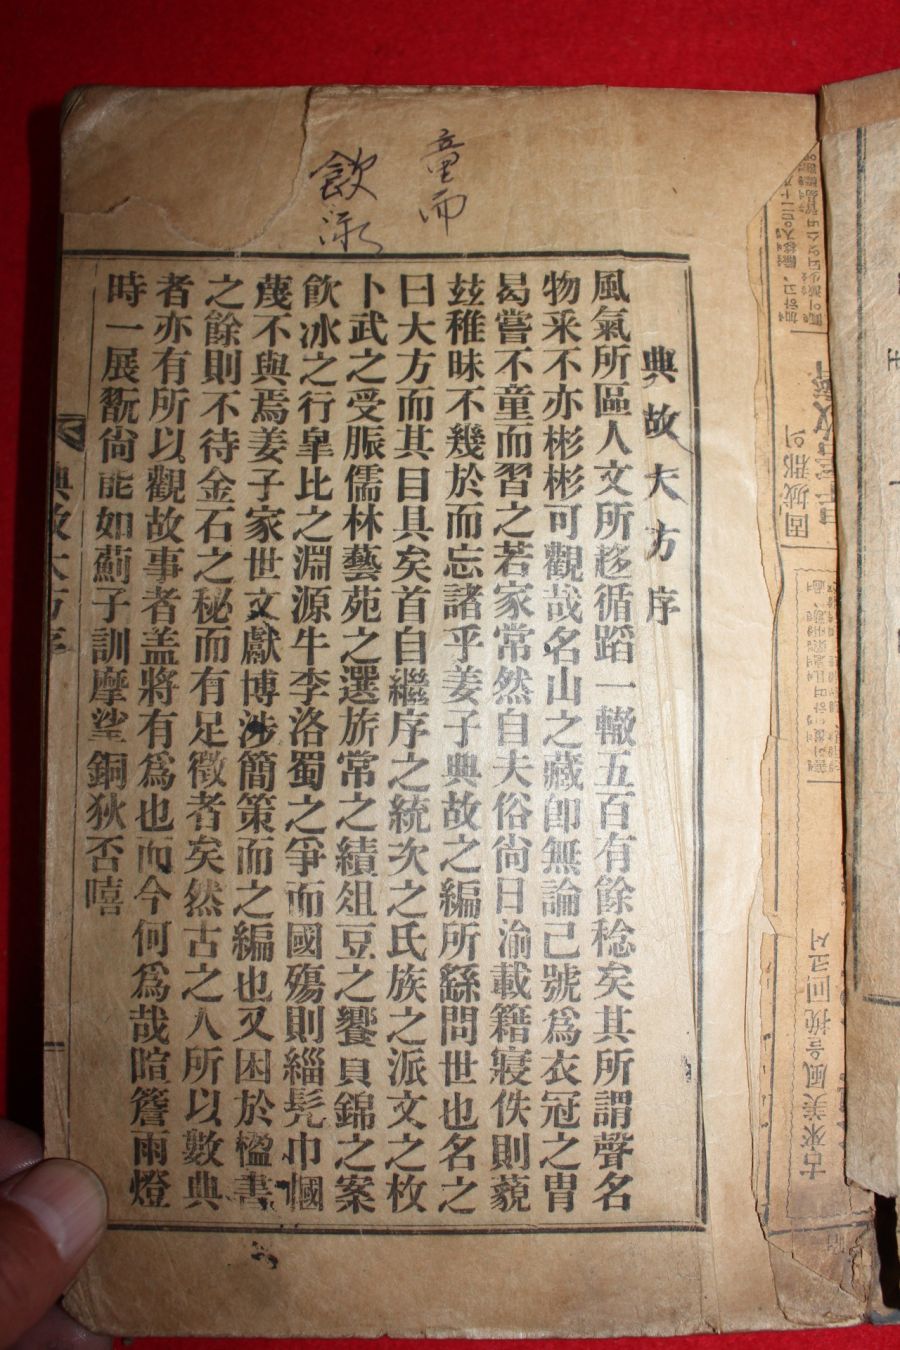 童而
飲
典故大方序
風氣所區人文所趍循蹈一轍五百有餘稔矣其所謂聲名
物釆不亦彬彬可觀哉名山之藏卽無論已號爲衣冠之胄
曷嘗不童而習之若家常然自夫俗尙日渝載籍寢佚則藐
玆稚昧不幾於而忘諸乎姜子典故之編所繇問世也名之
曰大方而其目具矣首自繼序之統次之氏族之派文之枚
卜武之受脤儒林藝苑之選旂常之績俎豆之饗貝錦之案
飮冰之行皐比之淵源牛李洛蜀之爭而國殤則緇髠巾幗
蔑不與焉姜子家世文獻博涉簡策而之編也又困於楹書
之餘則不待金石之秘而有足徵者矣然古之人所以數典
者亦有所以觀故事者盖將有爲也而今何爲哉暄簷雨燈
時一展翫尙能如薊子訓摩挲銅狄否嘻
典故大方序
固城郡의
古來美風을挽回코저